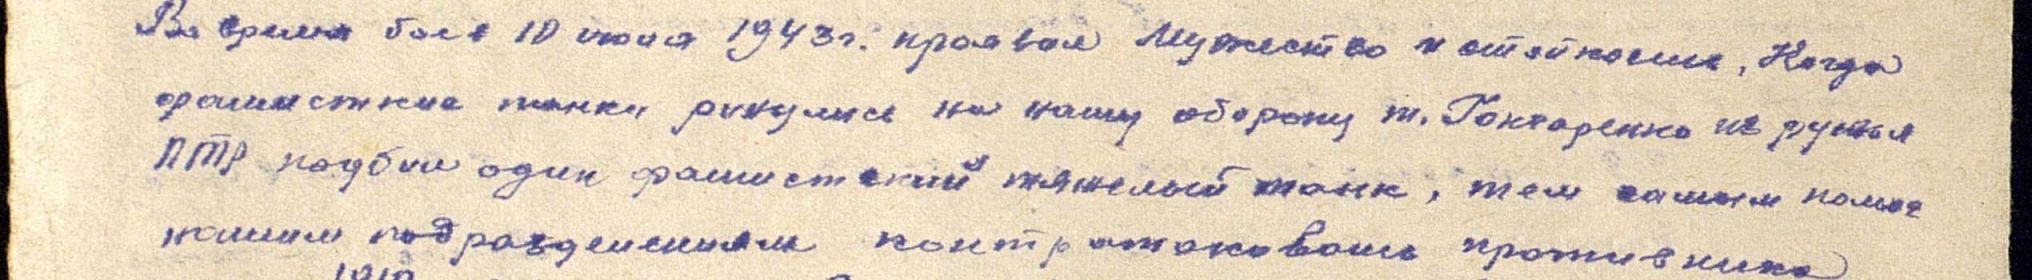 Во время боя 10 июля 1943г. проявил мужество и стойкость, Когда
фашисткие танки ринулись на нашу оборону т. Гончаренко из ружья
ПТР подбил один фашистский тяжелый танк, тем самым помог
нашим подразделениям контратаковать противника